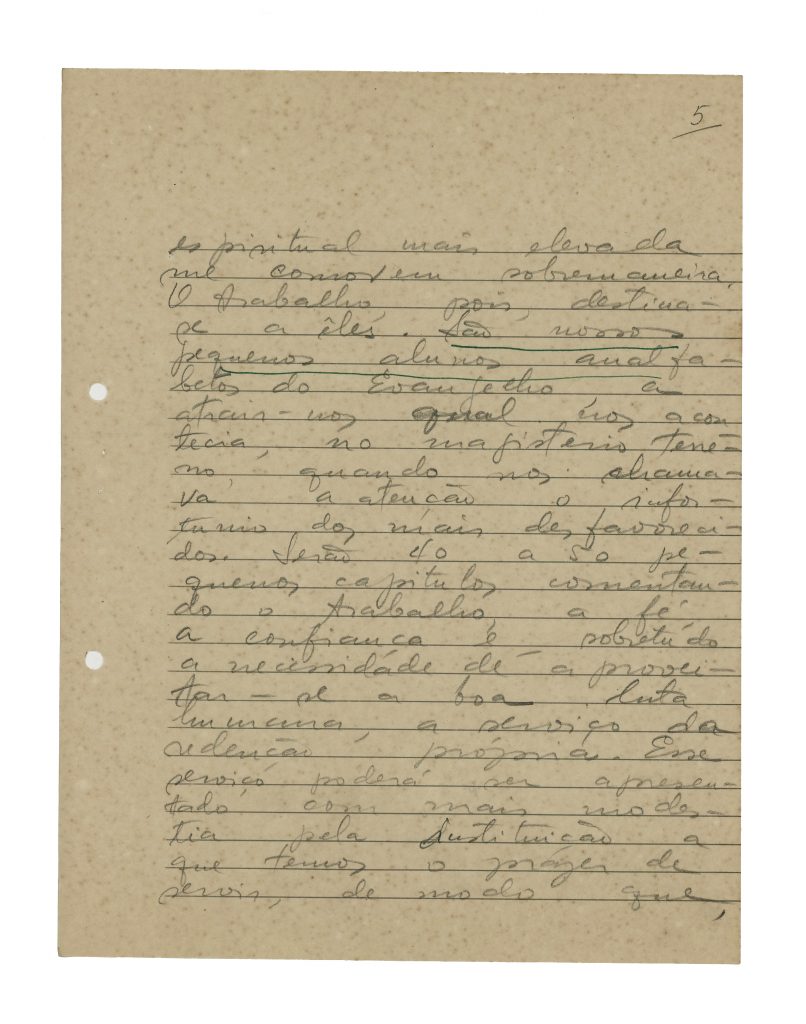 5
espiritual mais elevada
me comovem sobremaneira.
O trabalho, pois, destina-
se a êles. São nossos
pequenos alunos analfa-
betos do Evangelho a
atrair-nos qual nos acon
tecia, no magisterio terre-
no, quando nos chama-
va a atenção o infor-
tunio dos mais desfavoreci-
dos. Serão 40 a 50 pe-
quenos capitulos comentan-
do o trabalho, a fé
a confiança e sobretudo
a necessidade de aprovei-
tar-se a boa luta
humana, a serviço da
redenção própria. Esse
serviço poderá ser apresen-
tado com mais modes-
tia pela Instituição a
que temos o prazer de
servir, de modo que,